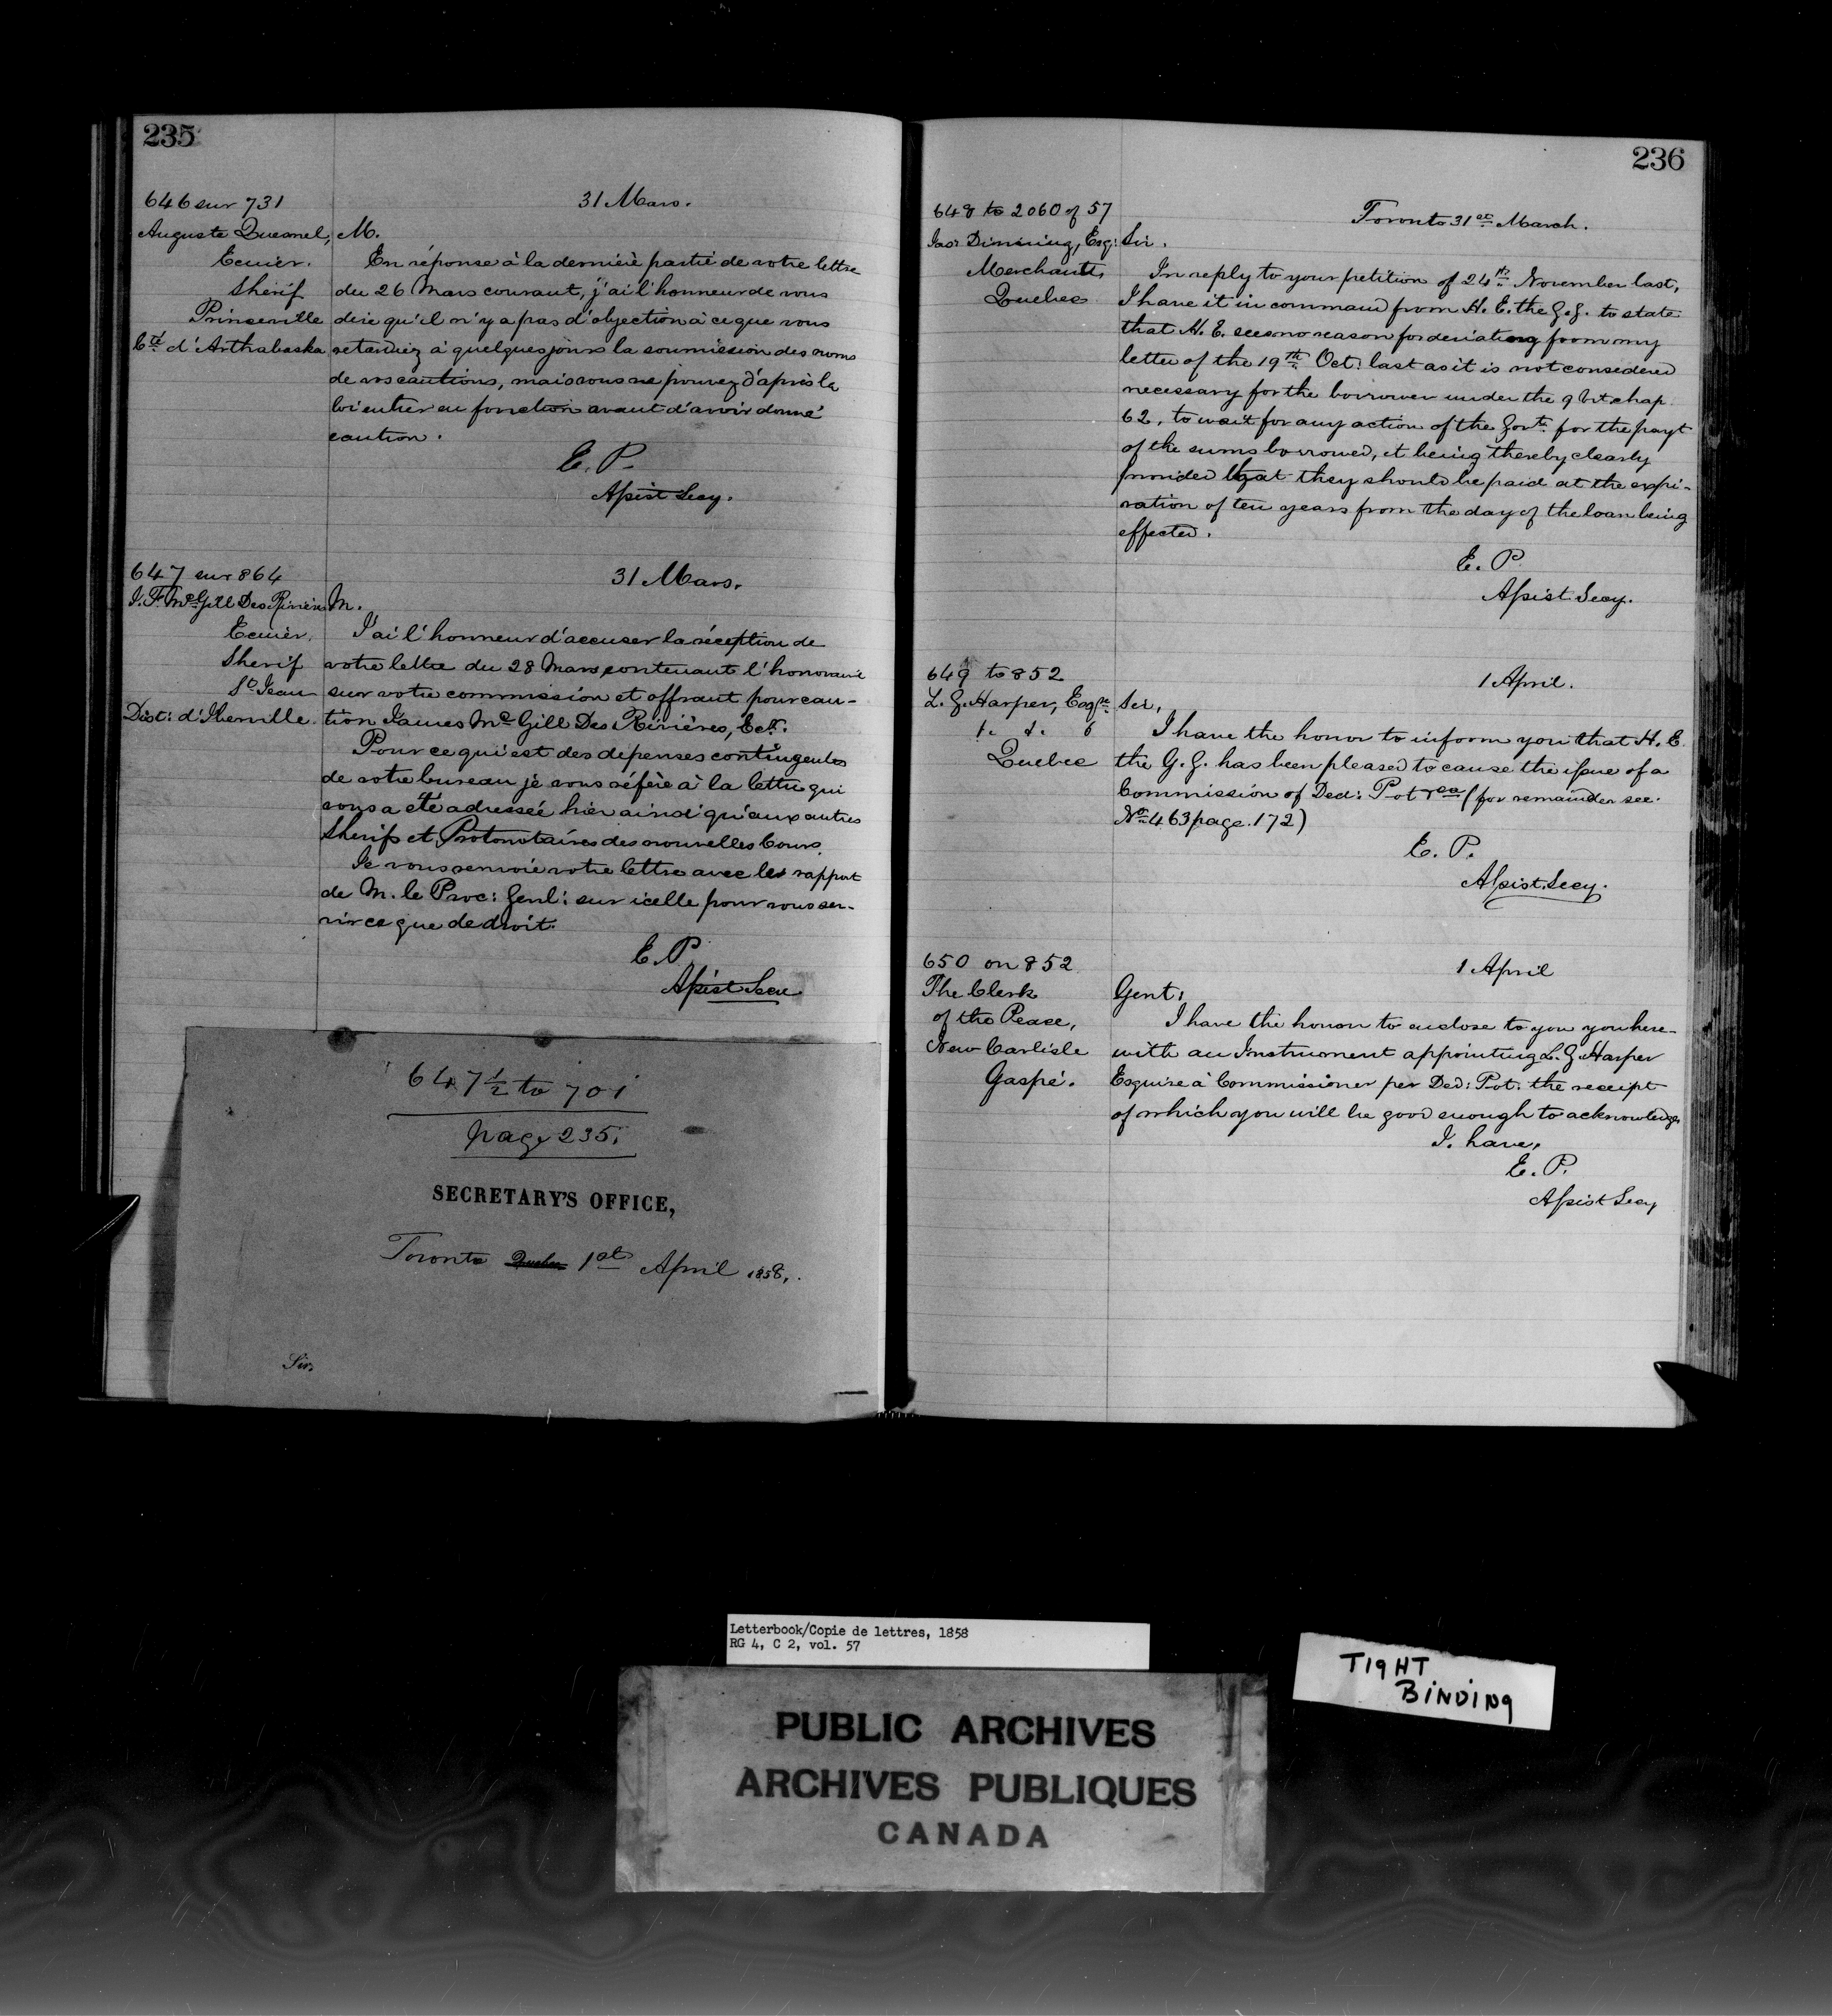 235
646 sur 731
31 Mars.
Auguste Quesnel,
Ecuier.
Shérif
Princeville
Cté d'Arthabaska
M.
En réponse à la dernière partie de votre lettre
du 26 Mars courant, j'ai l'honneur de vous
dire qu'il n'y a pas d'objection à ce que vous
retardiez à quelques jours la soumission des noms
de vos cautions, mais vous ne pouvez d'après la
loi entrer en fonction avant d'avoir donné
caution.
E. P.
Assist Secy.
647 sur 864
31 Mars.
J. F. McGill Des Rivières
Ecuier.
Shérif
St Jean
Dist: d'Iberville.
M.
J'ai l'honneur d'accuser la réception de
votre lettre du 28 Mars contenant l'honoraire
sur votre commission et offrant pour cau-
tion James McGill Des Rivières, Ecr.
Pour ce qui est des dépenses contingentes
de votre bureau je vous réfère à la lettre qui
vous a été adressée hier ainsi qu'aux autres
Shérifs et Protonotaires des nouvelles Cours.
Je vous renvoie votre lettre avec les rapport
de M. le Proc: Genl: sur icelle pour vous ser-
vir ce que de droit.
E. P.
Assist Secy
647½ to 701
page 235.
SECRETARY'S OFFICE,
Toronto Quebec 1st April 1858,
Sir,
236
648 to 2060 of 57
Toronto 31st March.
Jas Dinning, Esq:
Merchant,
Quebec
Sir.
In reply to your petition of 24th November last,
I have it in command from H. E. the G. G. to state
that H. E. sees no reason for deviating from my
letter of the 19th Oct: last as it is not considered
necessary for the borrower under the 9 Vict. chap.
62, to wait for any action of the Govt. for the payt
of the sums borrowed, it being thereby clearly
provided that they should be paid at the expi-
ration of ten years from the day of the loan being
effected.
E. P.
Assist Secy.
649 to 852
1 April.
L. G. Harper, Esqre
Quebec
Sir,
I have the honor to inform you that H. E.
the G. G. has been pleased to cause the issue of a
Commission of Ded: Pot &ca (for remainder see.
No 463 page. 172)
E. P.
Assist. Secy.
650 on 852
1 April
The Clerk
of the Peace,
New Carlisle
Gaspé.
Gent:
I have the honor to enclose to you you here-
with an Instrument appointing L. G. Harper
Esquire a Commissioner per Ded: Pot: the receipt
of which you will be good enough to acknowledge
I. have,
E. P.
Assist Secy
Letterbook/Copie de lettres, 1858
RG 4, C 2, vol. 57
TIGHT
BINDING
PUBLIC ARCHIVES
ARCHIVES PUBLIQUES
CANADA